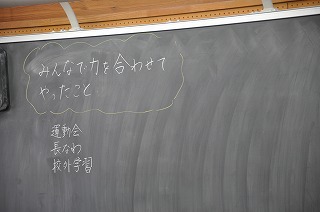 みんなで力を合わせて
やったこと
運動会
長なわ
校外学習